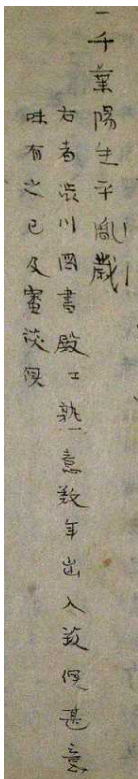 一千葉陽生平胤歳
右者渋川図書殿江熟意数年出入致候甚意
味有之已及蜜談候